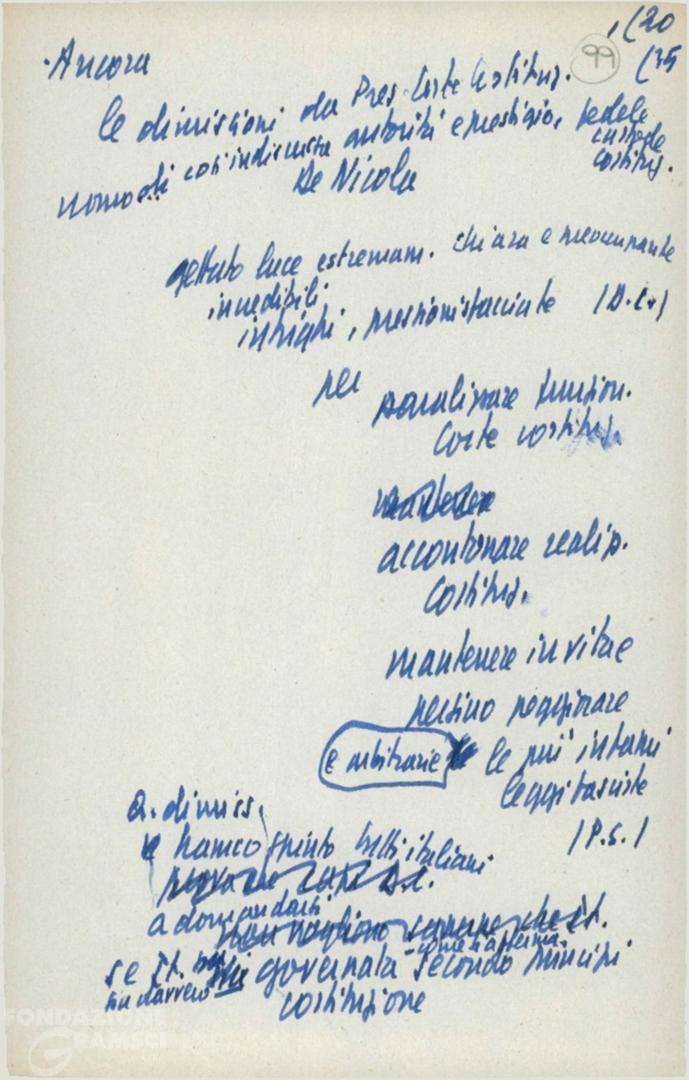 1(20
99 (35
·Ancora
le dimissioni da Pres. Corte Costituz.
uomo di così indiscussa autorità e prestigio, fedele
custode
costituz.
De Nicola
gettato luce estremam. chiara e preoccupante
incredibili
intrighi, pressioni sfacciate (D.C.)
per
paralizzare funzion.
Corte costituz.
accantonare realizz.
Costituz.
mantenere in vita e
persino peggiorare
e arbitrarie le più infami
leggi fasciste
(P.S.)
Q. dimiss.
hanno spinto tutti italiani
a domandarsi
come si afferma
se It.
sia davvero governata secondo principi
costituzione
FONDAZIONE
GRAMSCI